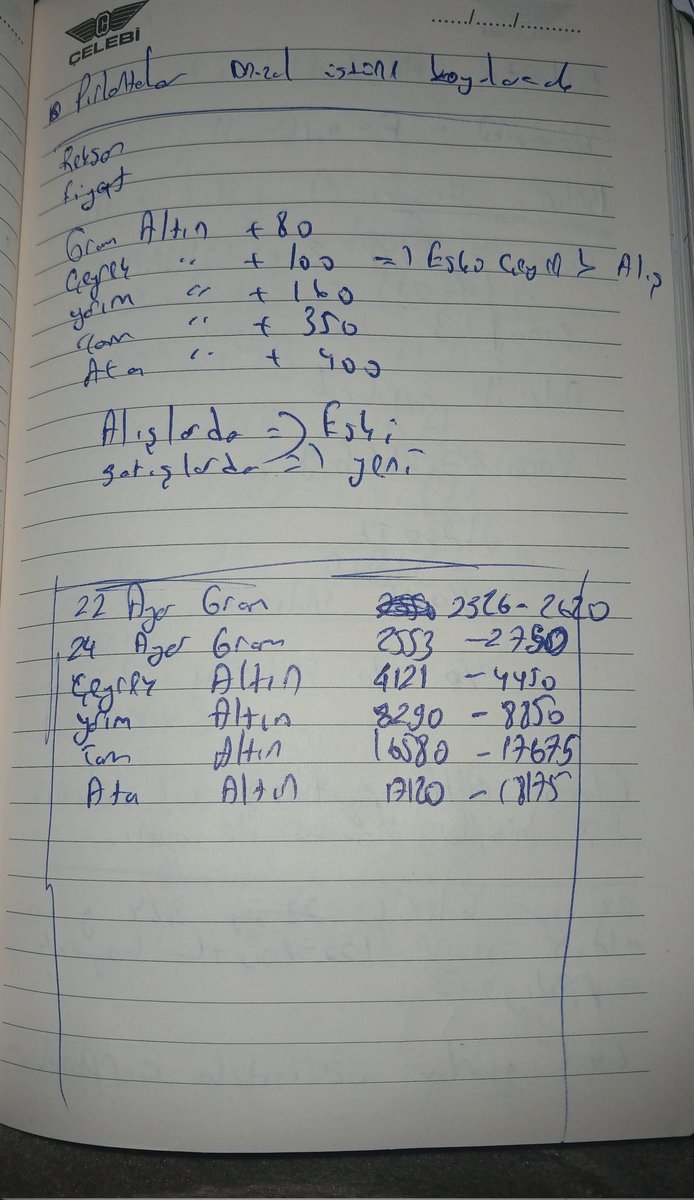 ÇELEBİ
....../....../..........
Pırlantalar
Rekson
Fiyat
Gram Altın + 80
Çeyrek " + 100 => Eski Çeyrek Alış
yarım " + 160
Tam " + 350
Ata " + 400
Alışlarda => Eski
Satışlarda => yeni
22 Ayar Gram 2326 - 2620
24 Ayar Gram 2553 - 2750
Çeyrek Altın 4121 - 4450
yarım Altın 8290 - 8850
Tam Altın 16580 - 17675
Ata Altın 17120 - 18175